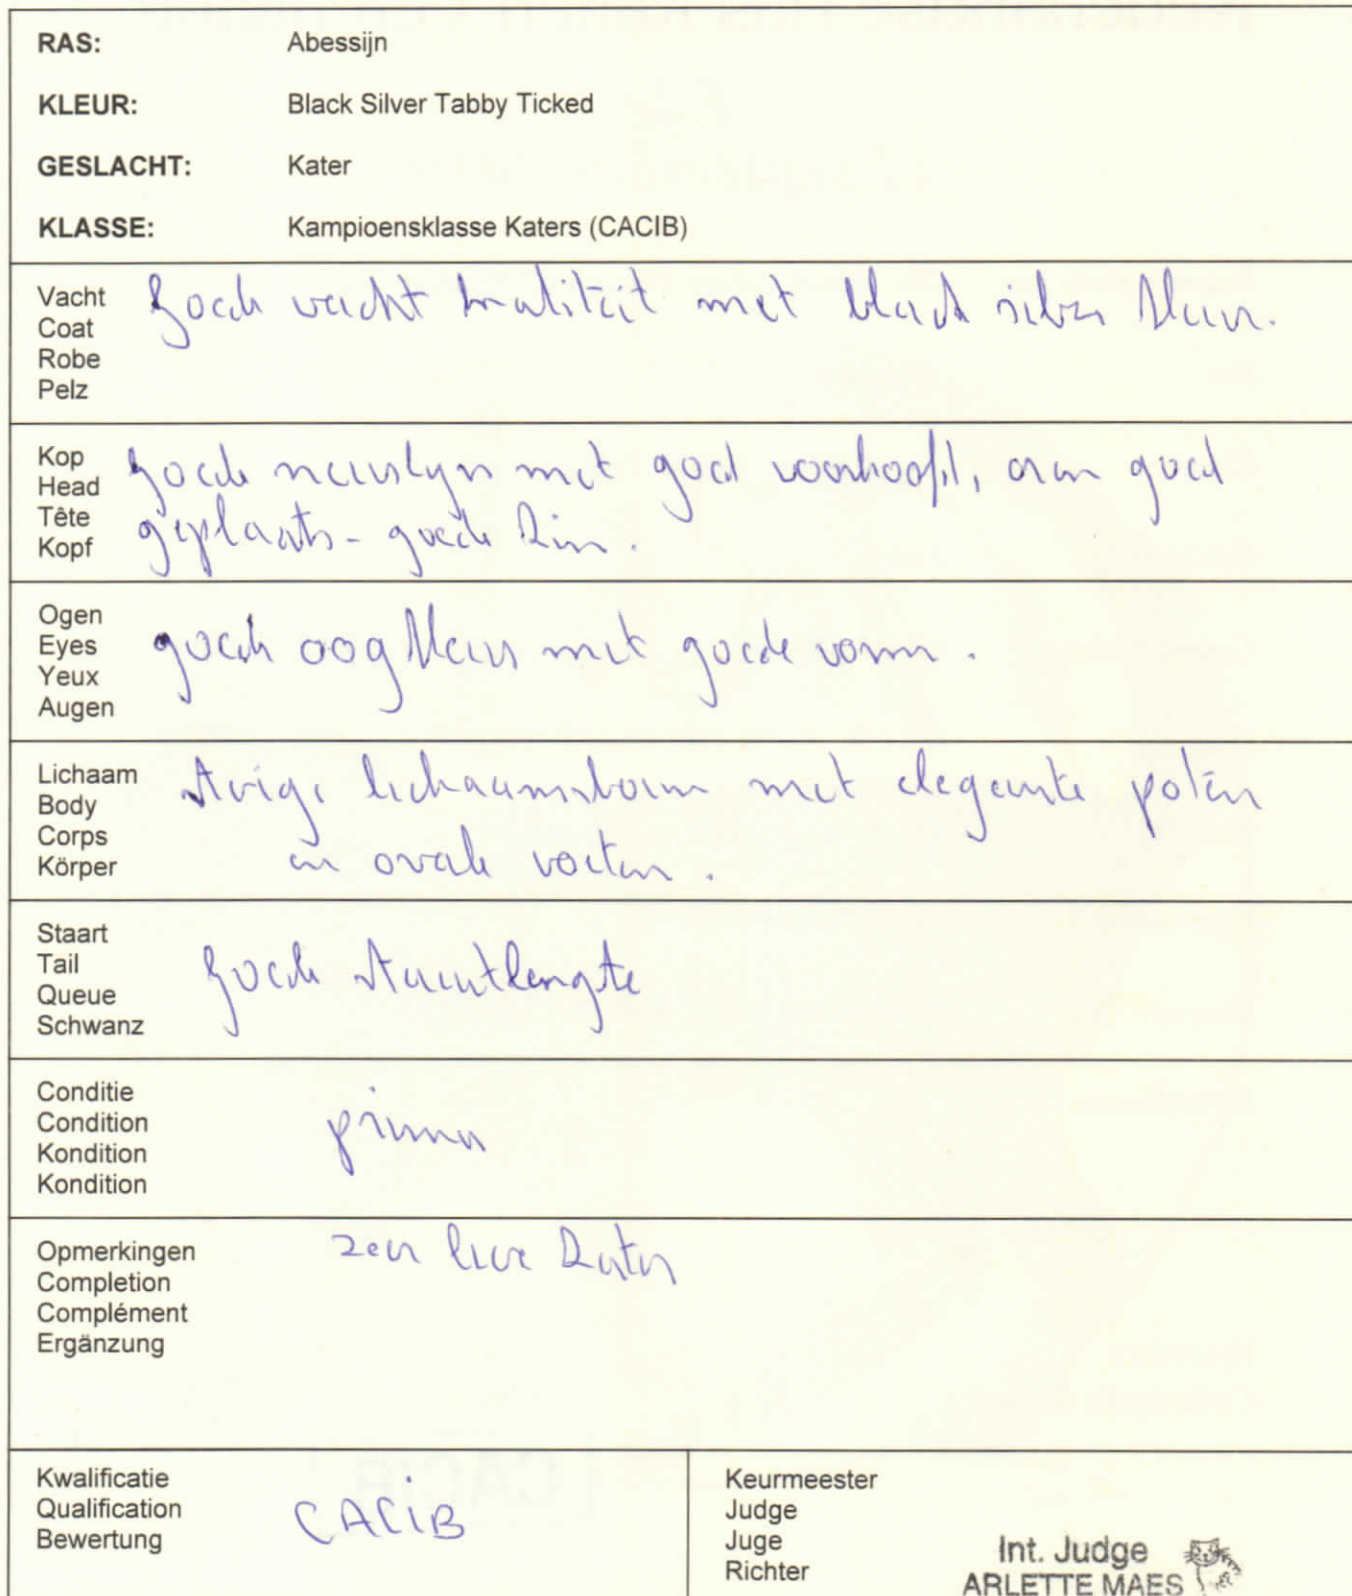 RAS: Abessijn
KLEUR: Black Silver Tabby Ticked
GESLACHT: Kater
KLASSE: Kampioensklasse Katers (CACIB)
Vacht
Coat
Robe
Pelz
Goede vacht kwaliteit met black silver kleur.
Kop
Head
Tête
Kopf
goede neuslyn met goed voorhoofd, oren goed
geplaats - goede kin.
Ogen
Eyes
Yeux
Augen
goede oogkleur met goede vorm.
Lichaam
Body
Corps
Körper
stevige lichaamsbouw met elegante poten
en ovale voeten.
Staart
Tail
Queue
Schwanz
Goede staartlengte
Conditie
Condition
Kondition
Kondition
prima
Opmerkingen
Completion
Complément
Ergänzung
zeer lieve kater
Kwalificatie
Qualification
Bewertung
CACIB
Keurmeester
Judge
Juge
Richter
Int. Judge
ARLETTE MAES